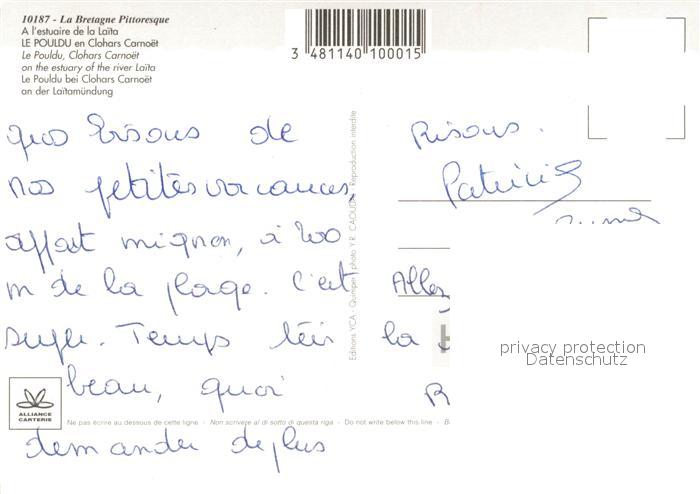 10187 - La Bretagne Pittoresque
A l'estuaire de la Laïta
LE POULDU en Clohars Carnoët
Le Pouldu, Clohars Carnoët
on the estuary of the river Laïta
Le Pouldu bei Clohars Carnoët
an der Laïtamündung
3 481140 100015
gros bisous de
nos petites vacances,
appart mignon, à 200
m de la plage. C'est
super. Temps très
beau, quoi
demander de plus
Bisous.
Patricia
Allez
la
Editions YCA - Quimper / photo Y.R. CAOUDAL Reproduction interdite
privacy protection
Datenschutz
ALLIANCE
CARTERIE
Ne pas écrire au dessous de cette ligne - Non scrivere al di sotto di questa riga - Do not write below this line - B